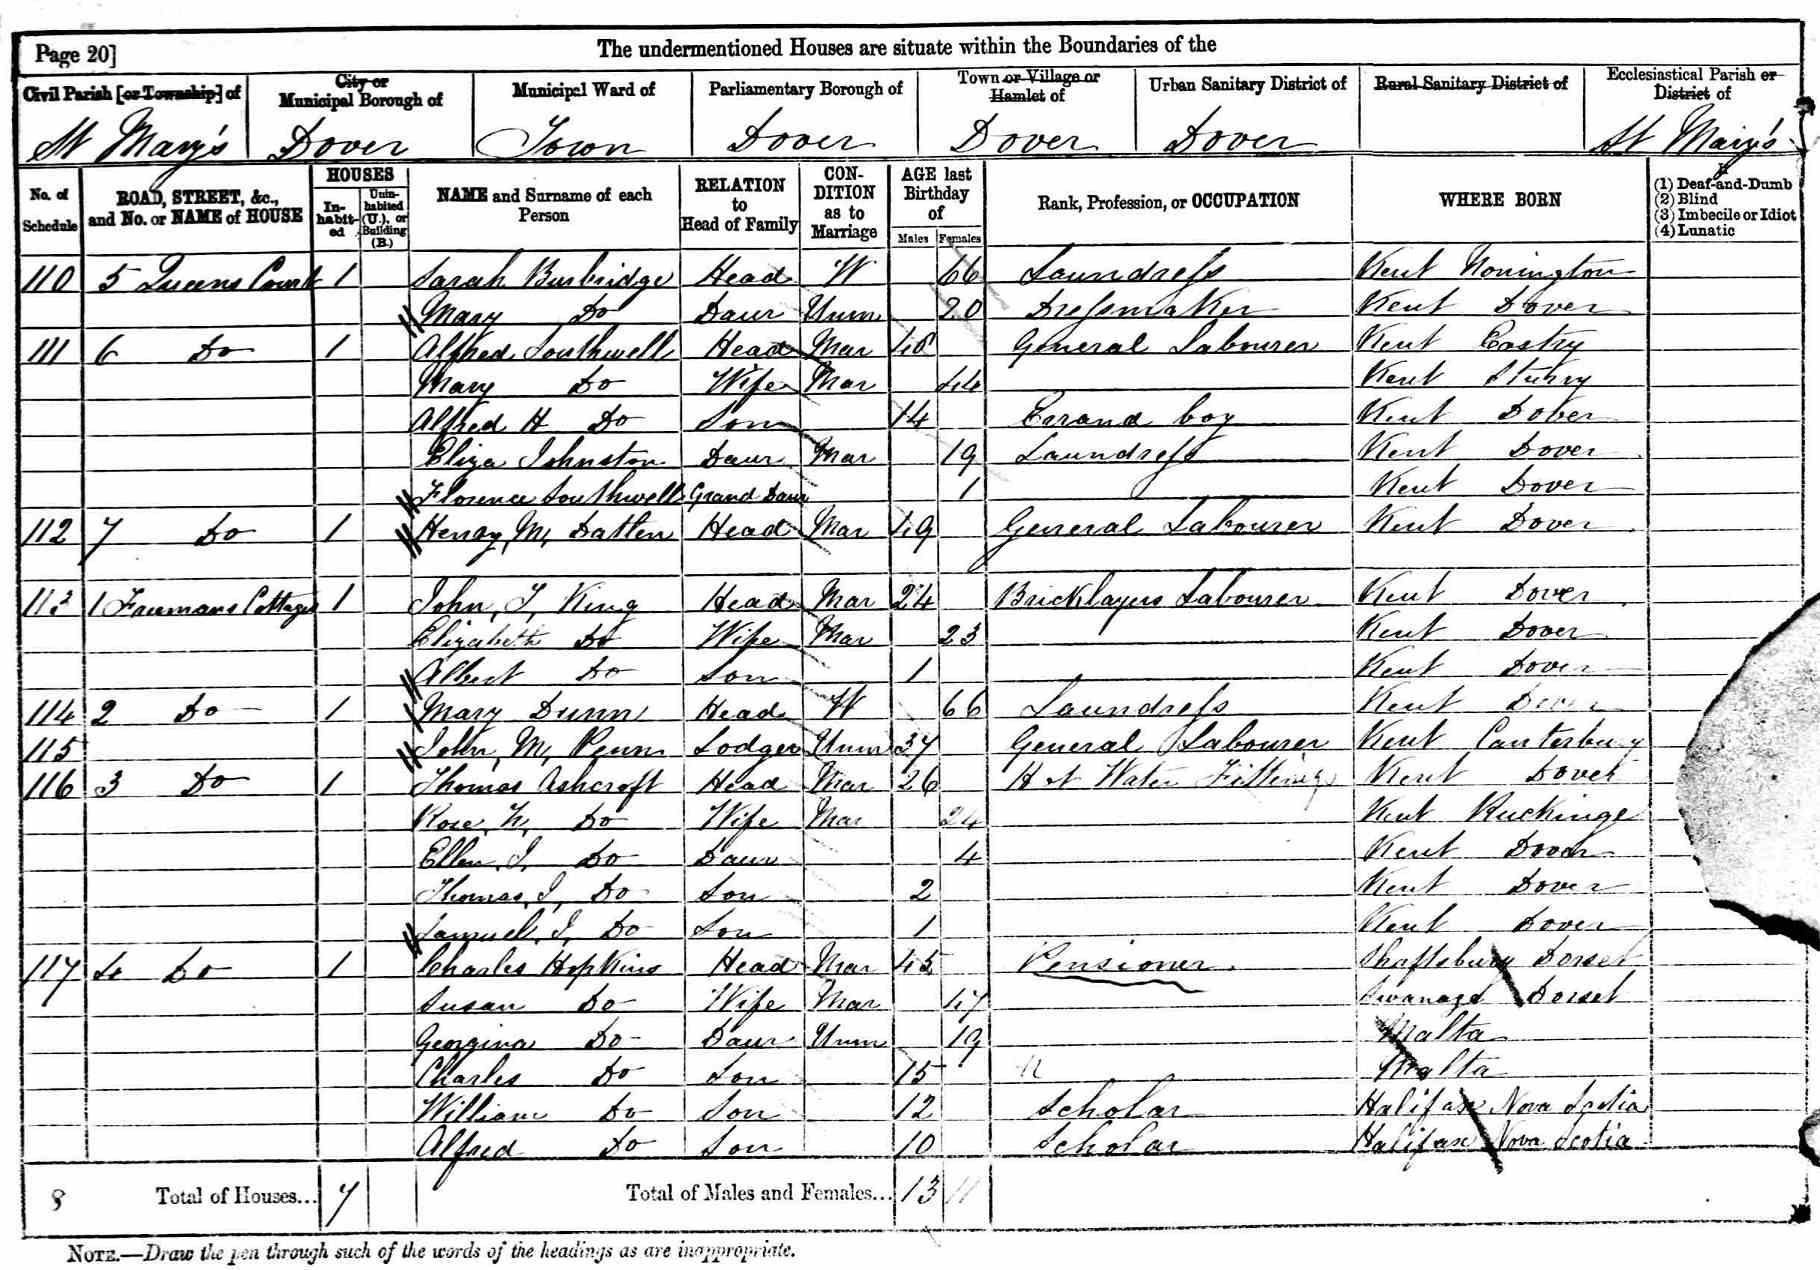 Page 20]
The undermentioned Houses are situate within the Boundaries of the
Civil Parish [or Township] of
City or Municipal Borough of
Municipal Ward of
Parliamentary Borough of
Town or Village or Hamlet of
Urban Sanitary District of
Rural Sanitary District of
Ecclesiastical Parish or District of
St Mary's Dover Town Dover Dover Dover St Mary's
No. of Schedule
ROAD, STREET, &c., and No. or NAME of HOUSE
HOUSES
Inhabited
Uninhabited (U.), or Building (B.)
NAME and Surname of each Person
RELATION to Head of Family
CONDITION as to Marriage
AGE last Birthday of
Males Females
Rank, Profession, or OCCUPATION
WHERE BORN
(1) Deaf-and-Dumb
(2) Blind
(3) Imbecile or Idiot
(4) Lunatic
110 5 Queens Court 1 Sarah Burbridge Head W 66 Laundress Kent Nonington
Mary Do Daur Unm 20 Dressmaker Kent Dover
111 6 Do 1 Alfred Southwell Head Mar 46 General Labourer Kent Eastry
Mary Do Wife Mar 44 Kent Sturry
Alfred H Do Son 14 Errand boy Kent Dover
Eliza Johnston Daur Mar 19 Laundress Kent Dover
Florence Southwell Grand Daur 1 Kent Dover
112 7 Do 1 Henry, M, Datlen Head Mar 49 General Labourer Kent Dover
113 1 Freemans Cottages 1 John, T, King Head Mar 24 Bricklayers Labourer Kent Dover
Elizabeth Do Wife Mar 23 Kent Dover
Albert Do Son 1 Kent Dover
114 2 Do 1 Mary Dunn Head W 66 Laundress Kent Dover
115 John, M, Penn Lodger Unm 37 General Labourer Kent Canterbury
116 3 Do 1 Thomas Ashcroft Head Mar 26 Hot Water Fitting Kent Dover
Rose, H, Do Wife Mar 24 Kent Ruckinge
Ellen, J, Do Daur 4 Kent Dover
Thomas, J, Do Son 2 Kent Dover
Samuel, J, Do Son 1 Kent Dover
117 4 Do 1 Charles Hopkins Head Mar 45 Pensioner Shaftsbury Dorset
Susan Do Wife Mar 47 Swanage Dorset
Georgina Do Daur Unm 19 Malta
Charles Do Son 15 Malta
William Do Son 12 Scholar Halifax Nova Scotia
Alfred Do Son 10 Scholar Halifax Nova Scotia
8 Total of Houses... 7 Total of Males and Females... 13 11
NOTE.—Draw the pen through such of the words of the headings as are inappropriate.